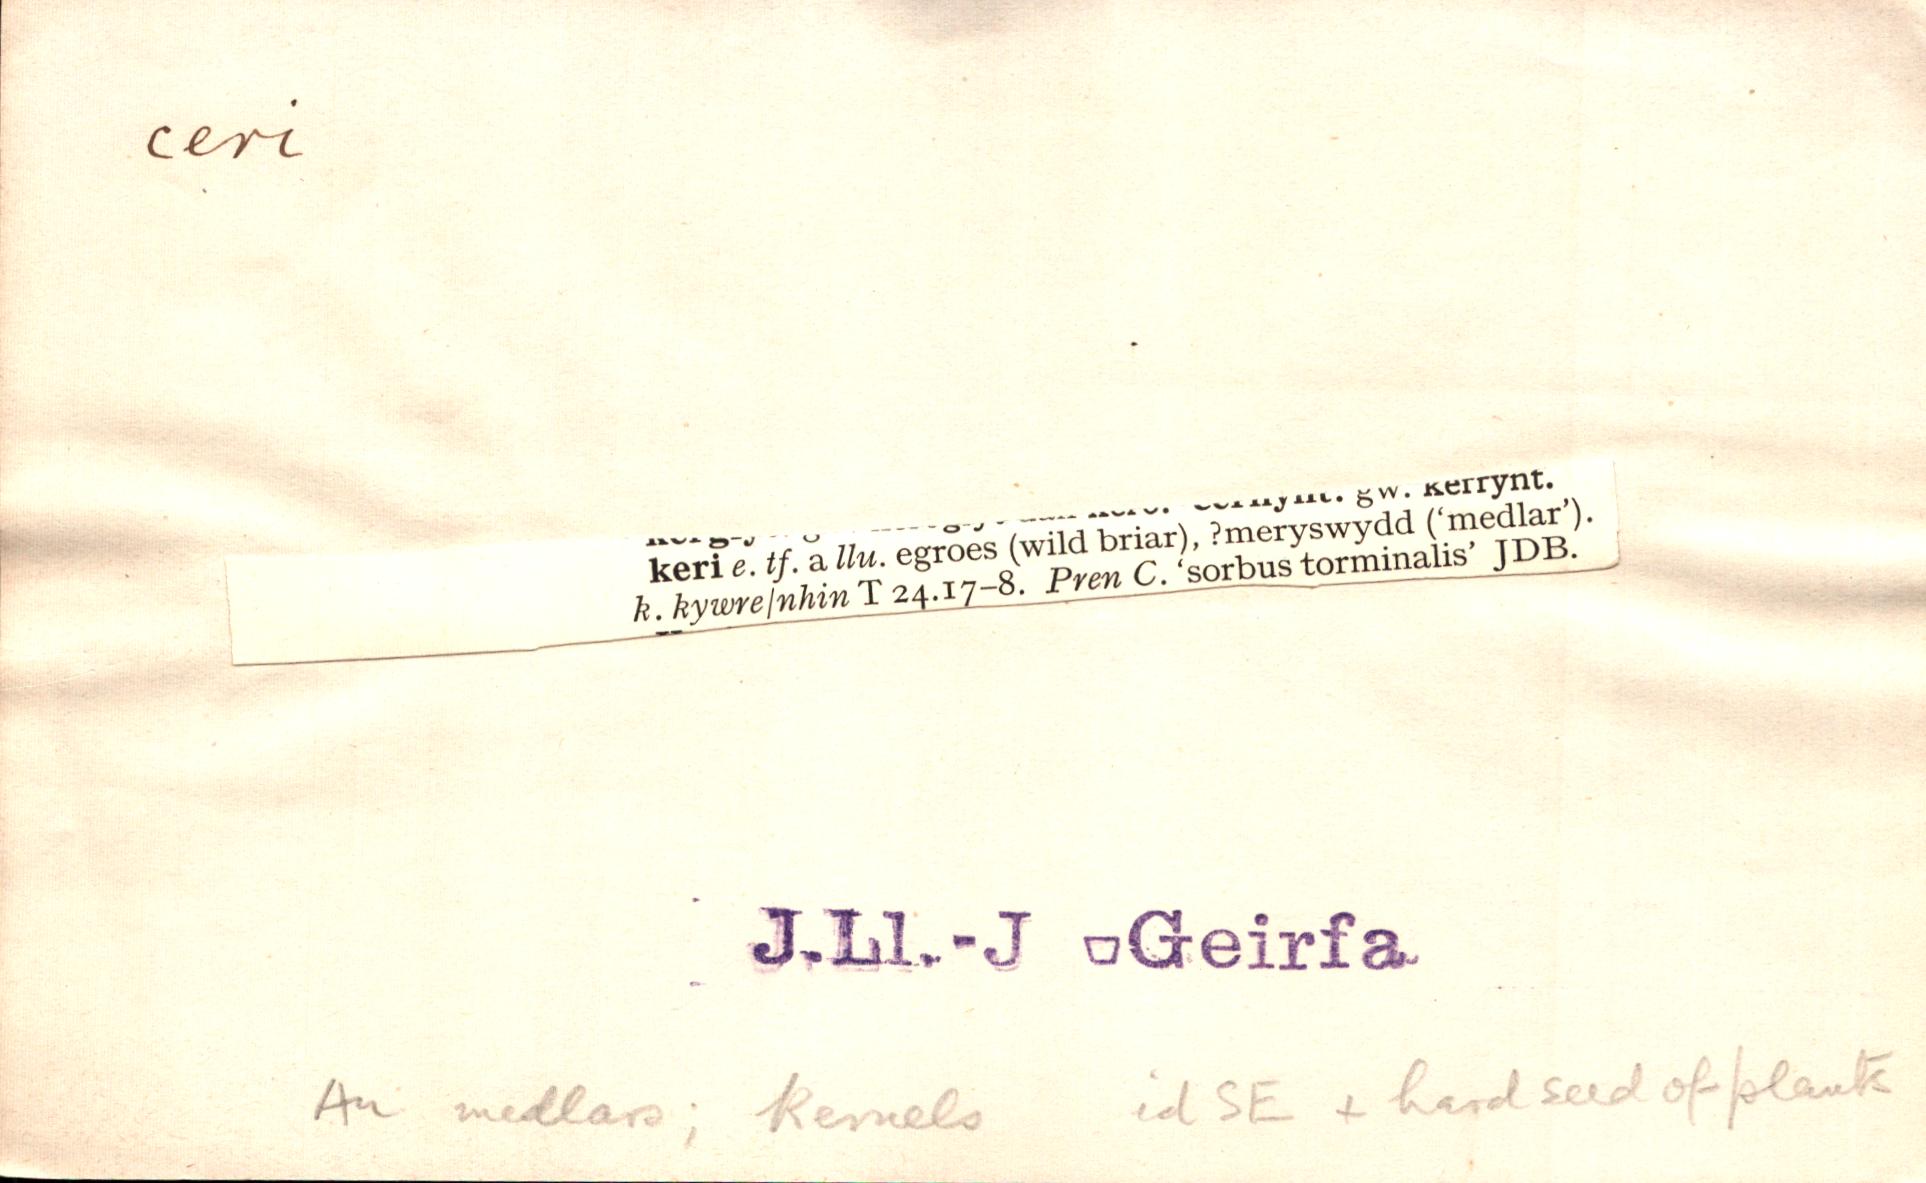 ceri
gw. kerrynt.
keri e. tf. a llu. egroes (wild briar), ?meryswydd (‘medlar’).
k. kywre/nhin T 24.17–8. Pren C. ‘sorbus torminalis’ JDB.
J.Ll.-J Geirfa
An medlars; kernels id SE + hard seed of plants